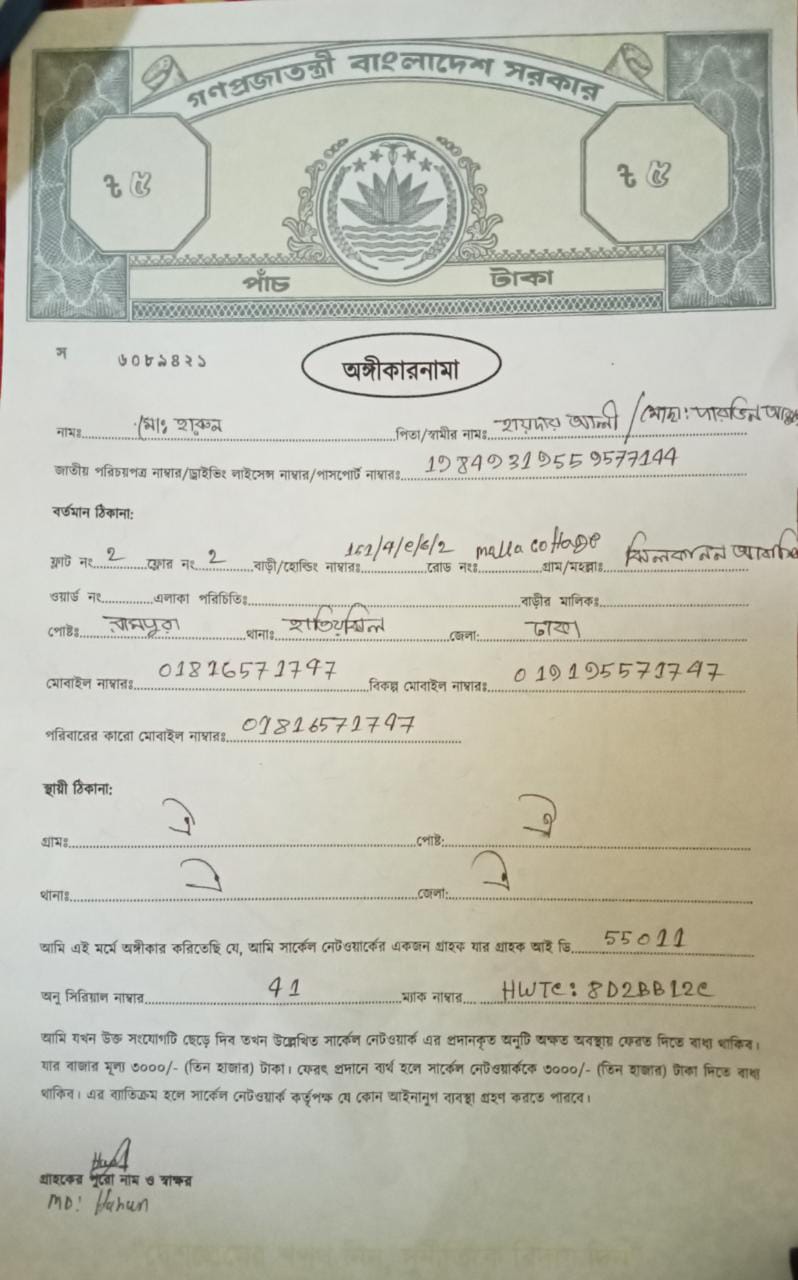 গণপ্রজাতন্ত্রী বাংলাদেশ সরকার
৳ ৫ ৳ ৫
পাঁচ টাকা
স ৬০৮৯৪২১
অঙ্গীকারনামা
নামঃ মোঃ হারুন পিতা/স্বামীর নামঃ হায়দার আলী / মোছাঃ পারভিন
জাতীয় পরিচয়পত্র নাম্বার/ড্রাইভিং লাইসেন্স নাম্বার/পাসপোর্ট নাম্বারঃ 19849319559577144
বর্তমান ঠিকানা:
ফ্লাট নং 2 ফ্লোর নং 2 বাড়ী/হোল্ডিং নাম্বারঃ রোড নংঃ malla cottage গ্রাম/মহল্লাঃ ঝিলকানন
ওয়ার্ড নং এলাকা পরিচিতিঃ বাড়ীর মালিকঃ
পোষ্টঃ রামপুরা থানাঃ হাতিরঝিল জেলা: ঢাকা
মোবাইল নাম্বারঃ 01816571747 বিকল্প মোবাইল নাম্বারঃ 019195571747
পরিবারের কারো মোবাইল নাম্বারঃ 01816571747
স্থায়ী ঠিকানা:
গ্রামঃ ঐ পোষ্ট: ঐ
থানাঃ ঐ জেলা: ঐ
আমি এই মর্মে অঙ্গীকার করিতেছি যে, আমি সার্কেল নেটওয়ার্কের একজন গ্রাহক যার গ্রাহক আই ডি. 55011
অনু সিরিয়াল নাম্বার 41 ম্যাক নাম্বার HWTC: 8D2BB12C
আমি যখন উক্ত সংযোগটি ছেড়ে দিব তখন উল্লেখিত সার্কেল নেটওয়ার্ক এর প্রদানকৃত অনুটি অক্ষত অবস্থায় ফেরত দিতে বাধ্য থাকিব।
যার বাজার মূল্য ৩০০০/- (তিন হাজার) টাকা। ফেরৎ প্রদানে ব্যর্থ হলে সার্কেল নেটওয়ার্ককে ৩০০০/- (তিন হাজার) টাকা দিতে বাধ্য
থাকিব। এর ব্যতিক্রম হলে সার্কেল নেটওয়ার্ক কর্তৃপক্ষ যে কোন আইনানুগ ব্যবস্থা গ্রহণ করতে পারবে।
গ্রাহকের পুরো নাম ও স্বাক্ষর
MD: Harun